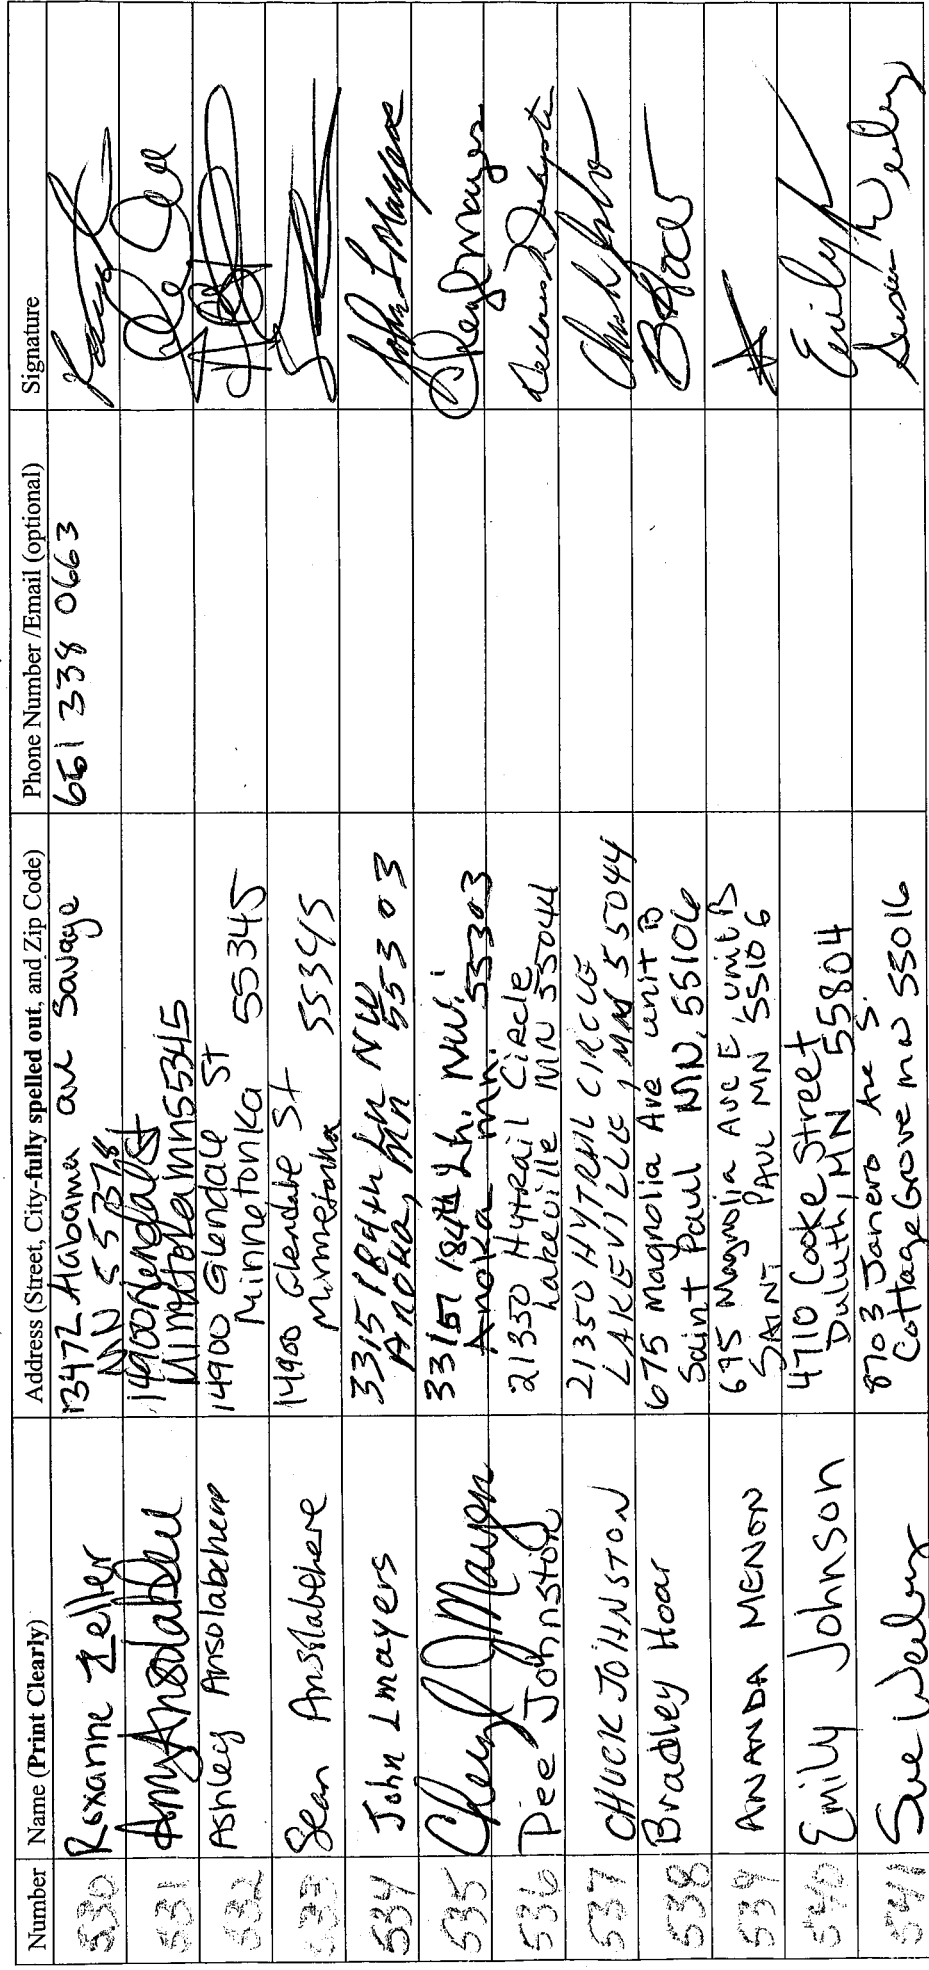 Number Name (Print Clearly) Address (Street, City-fully spelled out, and Zip Code) Phone Number /Email (optional) Signature
530 Roxanne Zeller 13472 Alabama ave Savage 651 338 0663
MN 55378
531 Amy Ansolabehere 14900 Glendale St
Minnetonka mn 55345
532 Ashley Ansolabehere 14900 Glendale St
Minnetonka 55345
533 Sean Ansolabehere 14900 Glendale St
Minnetonka 55345
534 John L mayers 3315 184th Ln NW John L Mayers
Anoka, MN 55303
535 Cheryl Mayers 3315 184th Ln. NW. Cheryl Mayers
Anoka mn. 55303
536 Dee Johnston 21350 Hytrail Circle
Lakeville MN 55044
537 CHUCK JOHNSTON 21350 HYTRAIL CIRCLE
LAKEVILLE, MN 55044
538 Bradley Hoar 675 Magnolia Ave unit B
Saint Paul MN, 55106
539 ANANDA MENON 695 Magnolia Ave E unit B
SAINT PAUL MN 55106
540 Emily Johnson 4710 Cooke Street Emily
Duluth, MN 55804
541 Sue Weber 8703 Janero Ave S.
Cottage Grove mn 55016